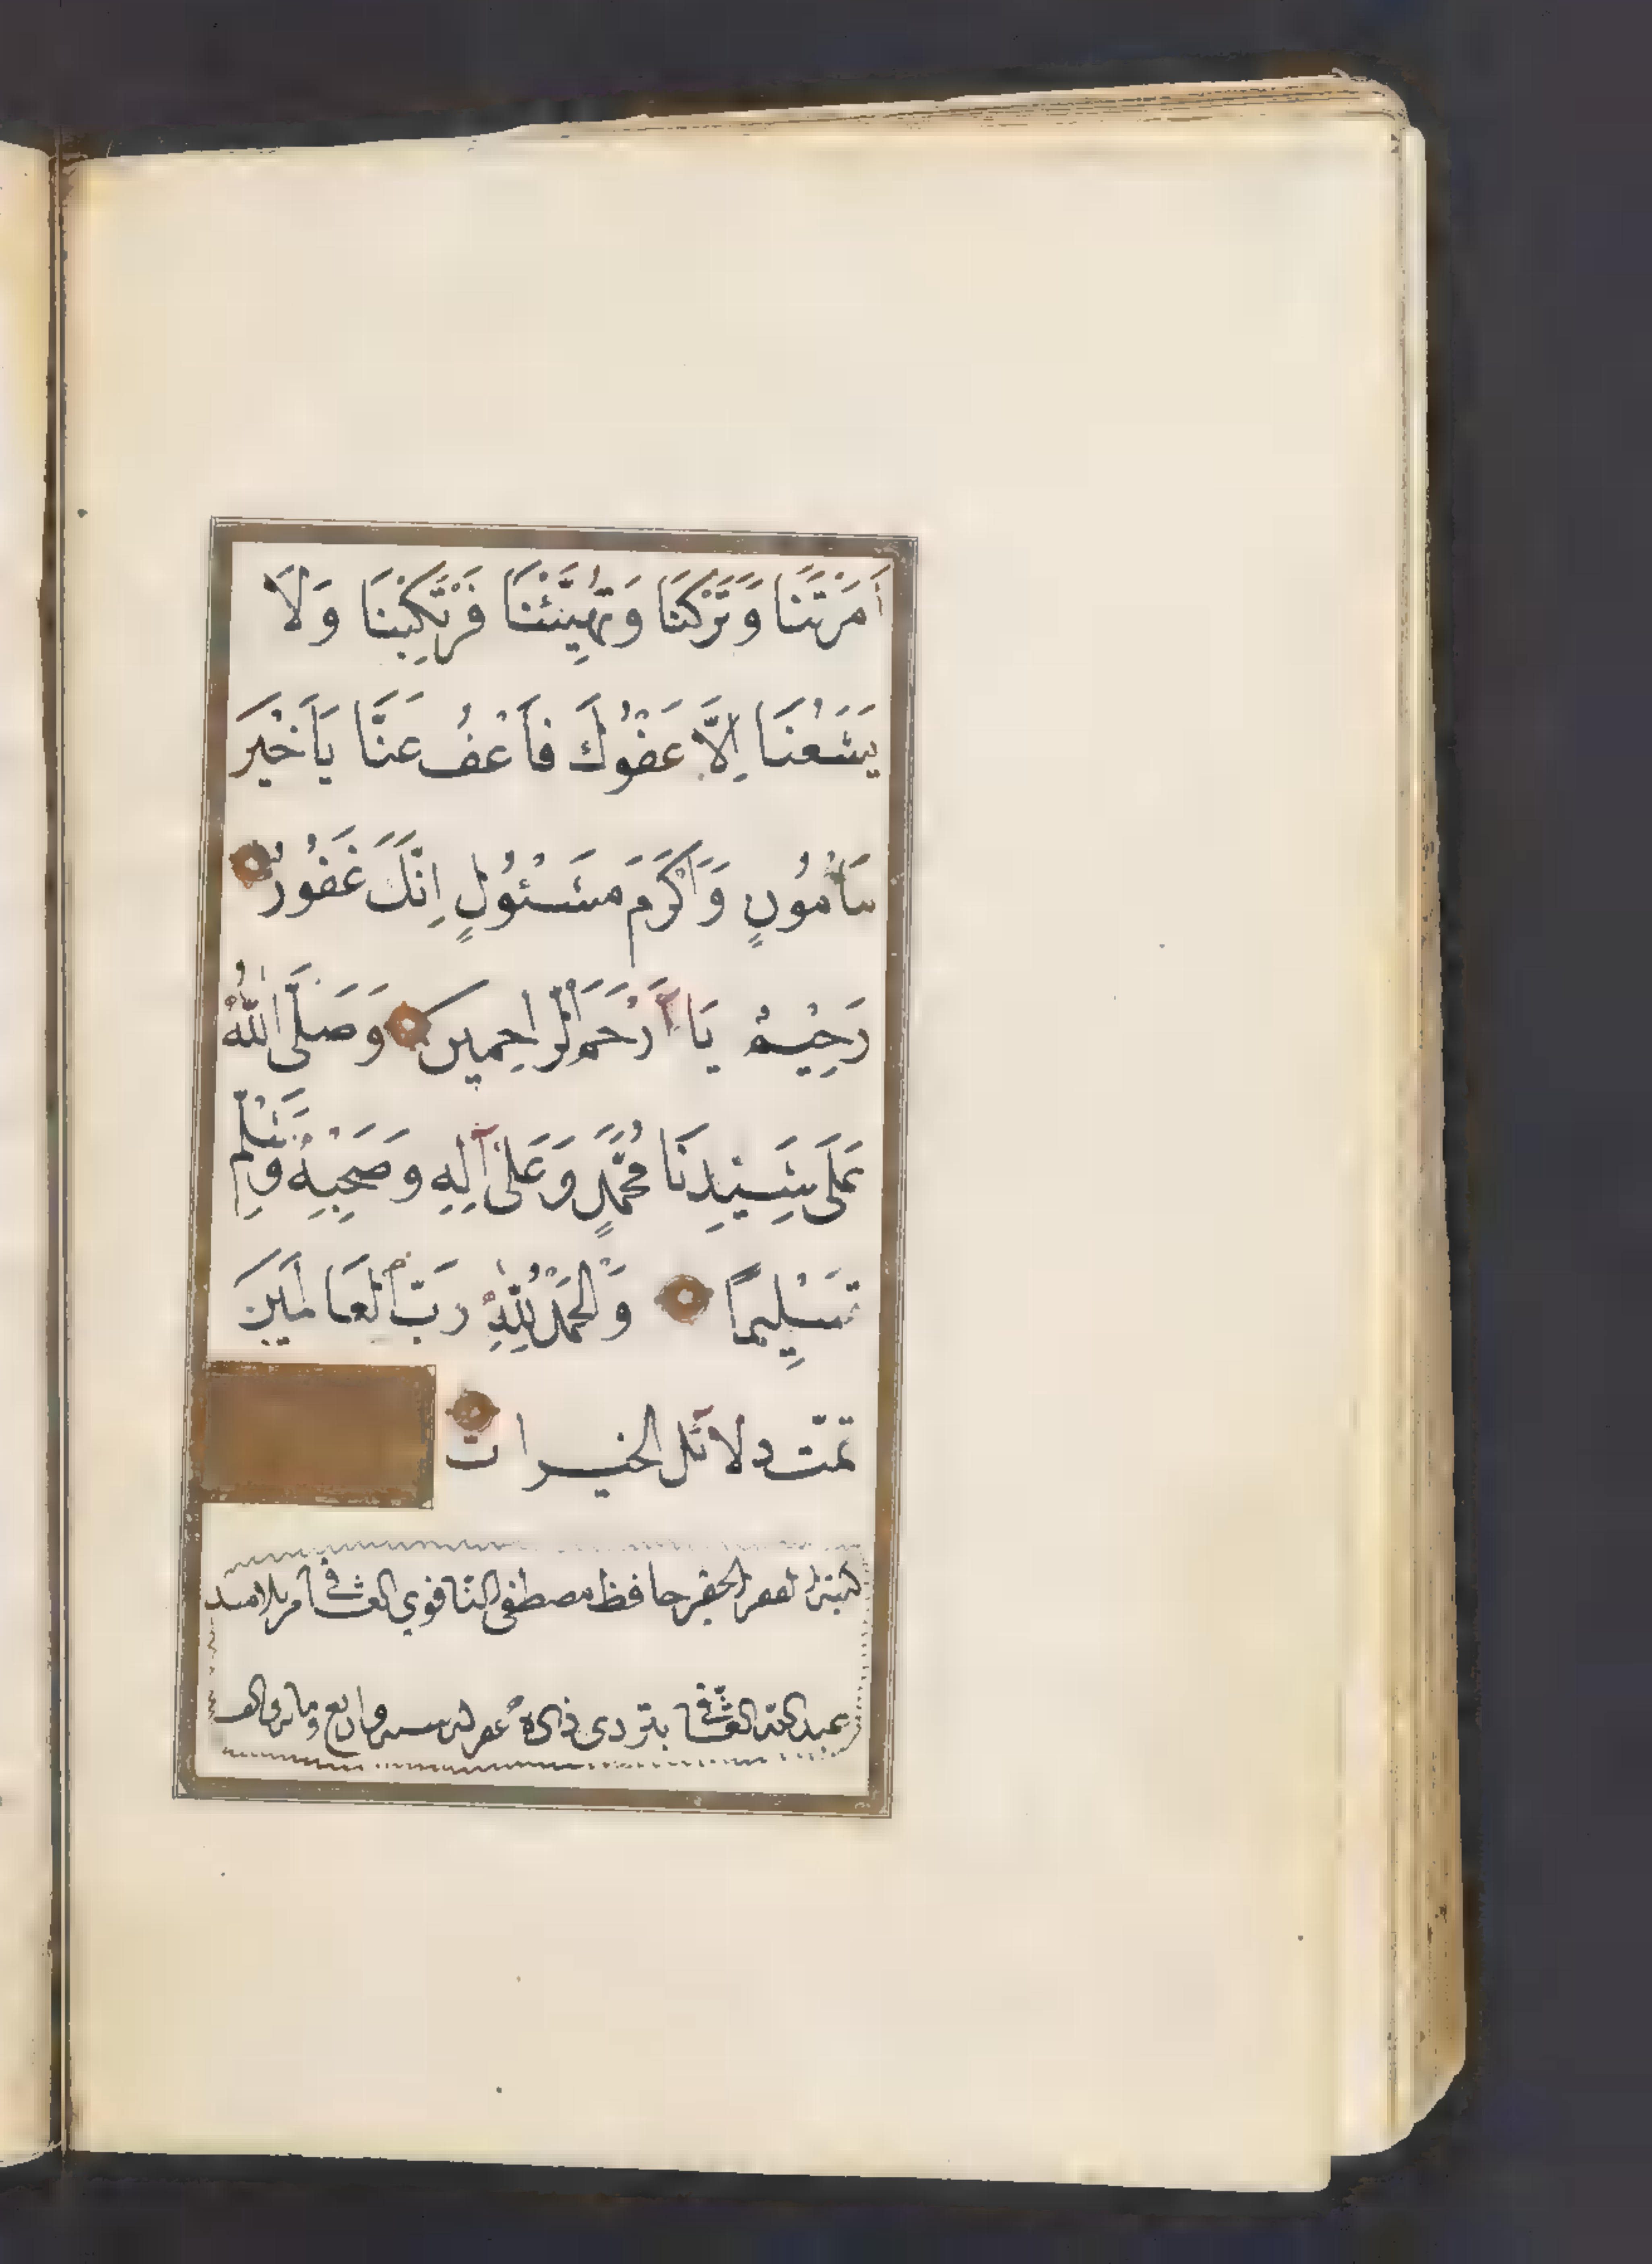 اَمَرْتَنَا وَتَرَكْنَا وَنَهَيْتَنَا فَرْتَكَبْنَا وَلَا
يَسَعُنَا اِلَّا عَفْوُكَ فَاَعْفُ عَنَّا يَاخَيْرَ
مَأْمُولٍ وَاَكْرَمَ مَسْئُولٍ اِنَّكَ غَفُورٌ
رَحِيْمٌ يَا اَرْحَمَ الرَّاحِمِينَ وَصَلَّى اللّٰهُ
عَلَى سَيِّدِنَا مُحَمَّدٍ وَعَلَى آلِهِ وَصَحْبِهِ وَسَلِّمْ
تَسْلِيمًا وَالْحَمْدُ لِلّٰهِ رَبِّ الْعَالَمِينَ
تمّت دلائل الخيرات
كتبه الفقير الحقير حافظ مصطفى العشاقى من تلاميذ
عبد الله العشاقى ذى الحجه سنه اربع ومائتين والف